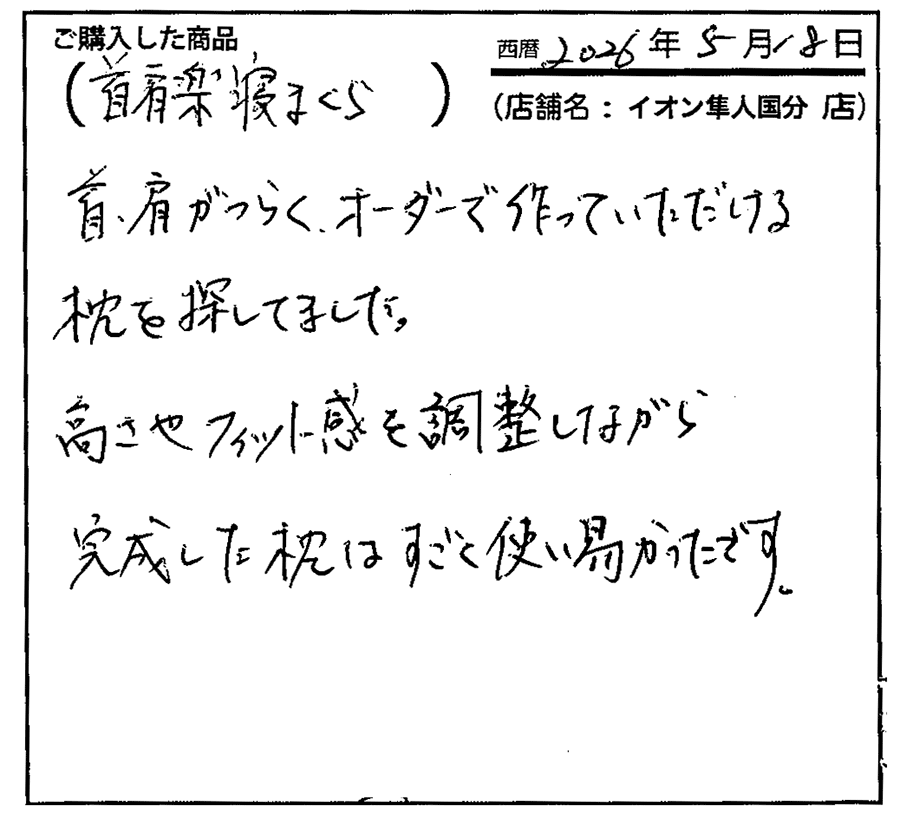 ご購入した商品
西暦 2026年 5月18日
(首肩楽寝まくら)
(店舗名：イオン隼人国分 店)
首、肩がつらく、オーダーで作っていただける
枕を探してました。
高さやフィット感を調整しながら
完成した枕はすごく使い易かったです。